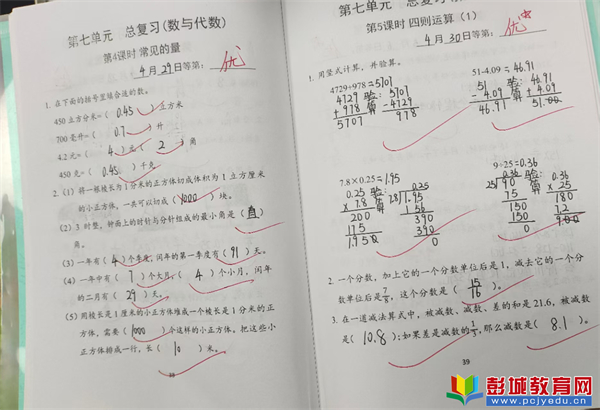 第七单元 总复习(数与代数)
第4课时 常见的量
4月29日等第: 优
1. 在下面的括号里填合适的数。
450立方分米=( 0.45 )立方米
700毫升=( 0.7 )升
4.2元=( 4 )元( 2 )角
450克=( 0.45 )千克
2. (1) 将一根棱长为1分米的正方体切成体积为1立方厘米
的小正方体,一共可以切成( 1000 )块。
(2) 3时整,钟面上的时针与分针组成的最小角是( 直 )
角。
(3) 一年有( 4 )个季度,闰年的第一季度有( 91 )天。
(4) 一年中有( 7 )个大月,( 4 )个小月,闰年
的二月有( 29 )天。
(5) 两根棱长是1厘米的小正方体堆成一个棱长是1分米的正
方体,需要( 1000 )个这样的小正方体,把这些小
正方体排成一行,长( 10 )米。
38
第七单元 总复习
第5课时 四则运算(1)
4月30日等第: 优
1. 用竖式计算,并验算。
4729+978=5707 51-4.09=46.91
4729 验: 5707 51 验: 46.91
+ 978 算 -4729 - 4.09 算 + 4.09
5707 978 46.91 51.00
7.8×0.25=1.95 9÷25=0.36
0.25 验: 0.25 0.36 验: 0.36
×7.8 算 7.8 1.95 25 90 算 × 25
200 1 56 75 180
175 390 150 72
1.950 390 150 9.00
0 0
2. 一个分数,加上它的一个分数单位后是1,减去它的一个分
数单位后是7/8,这个分数是( 15/16 )。
3. 在一道减法算式中,被减数、减数、差的和是21.6,被减数
是( 10.8 );如果差是减数的1/3,那么减数是( 8.1 )。
39
彭城教育网
www.pcjyedu.cn